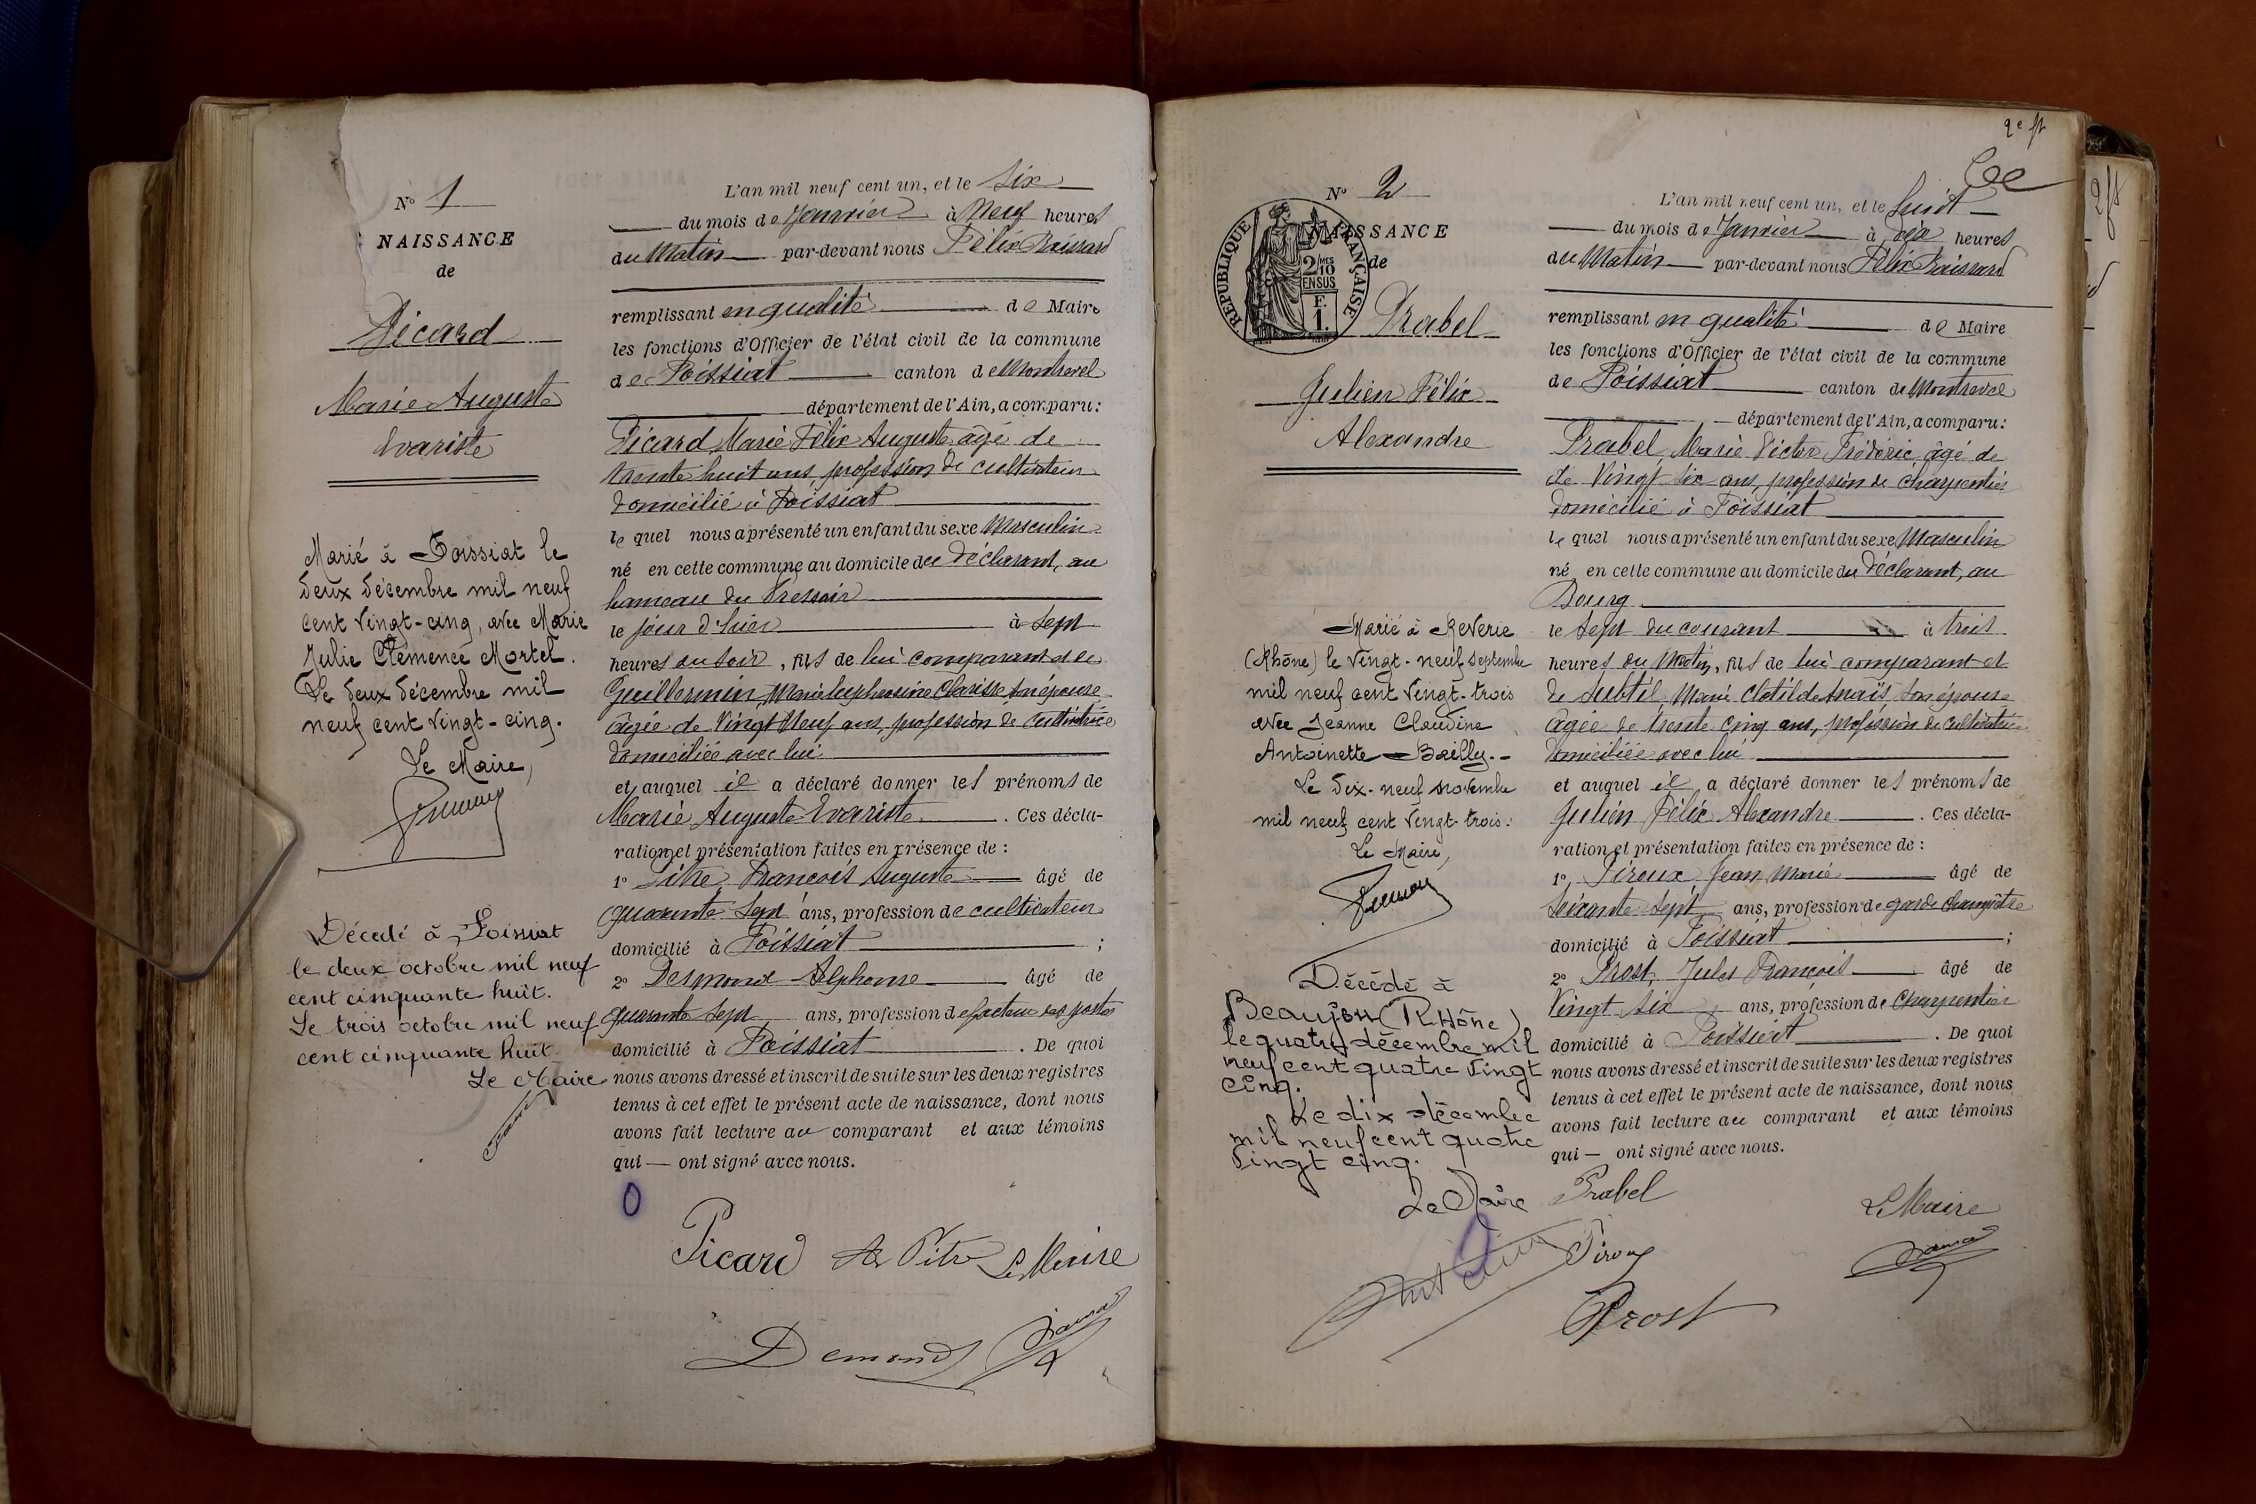 N° 1
NAISSANCE
de
Picard
Marie Auguste
Evariste
Marié à Foissiat le
deux décembre mil neuf
cent vingt-cinq, avec Marie
Julie Clémence Mortel.
Le deux décembre mil
neuf cent vingt-cinq.
Le Maire,
Décédé à Foissiat
le deux octobre mil neuf
cent cinquante huit.
Le trois octobre mil neuf
cent cinquante huit
Le Maire
L'an mil neuf cent un, et le six
du mois de Janvier à Neuf heures
du Matin par-devant nous Félix
remplissant en qualité de Maire
les fonctions d'Officier de l'état civil de la commune
de Foissiat canton de Montrevel
département de l'Ain, a comparu:
Picard Marie Félix Auguste âgé de
trente huit ans, profession de cultivateur
domicilié à Foissiat
le quel nous a présenté un enfant du sexe Masculin
né en cette commune au domicile du déclarant, au
hameau du Pressoir
le jour d'hier à sept
heures du soir, fils de lui comparant et de
Guillermin, Marie Euphrosine Clarisse son épouse
âgée de Vingt Neuf ans, profession de cultivatrice
domiciliée avec lui
et auquel il a déclaré donner les prénoms de
Marie Auguste Evariste. Ces décla-
ration et présentation faites en présence de :
1° Pitre, François Auguste âgé de
quarante sept ans, profession de cultivateur
domicilié à Foissiat ;
2° Desmond Alphonse âgé de
quarante sept ans, profession de facteur des postes
domicilié à Foissiat. De quoi
nous avons dressé et inscrit de suite sur les deux registres
tenus à cet effet le présent acte de naissance, dont nous
avons fait lecture au comparant et aux témoins
qui — ont signé avec nous.
Picard Pitre Le Maire
Demond
2e ft
N° 2
NAISSANCE
de
RÉPUBLIQUE FRANÇAISE
2/10 MES
EN SUS
F.
1.
Prabel
Julien Félix
Alexandre
Marié à Reverie
(Rhône) le vingt-neuf septembre
mil neuf cent vingt-trois
avec Jeanne Claudine
Antoinette Bailly.-
Le dix-neuf novembre
mil neuf cent vingt-trois.
Le Maire,
Décédé à
Beaujeu (Rhône)
le quatre décembre mil
neuf cent quatre vingt
cinq.
Le dix décembre
mil neuf cent quatre
vingt cinq.
Le Maire
L'an mil neuf cent un, et le huit
du mois de Janvier à dix heures
du Matin par-devant nous Félix
remplissant en qualité de Maire
les fonctions d'Officier de l'état civil de la commune
de Foissiat canton de Montrevel
département de l'Ain, a comparu:
Prabel, Marie Victor Frédéric âgé de
de Vingt six ans, profession de charpentier
domicilié à Foissiat
le quel nous a présenté un enfant du sexe Masculin
né en cette commune au domicile du déclarant, au
Bourg
le sept du courant à trois
heures du Matin, fils de lui comparant et
de Subtil, Marie Clotilde Anaïs, son épouse
âgée de trente cinq ans, profession de cultivatrice
domiciliée avec lui
et auquel il a déclaré donner les prénoms de
Julien Félix Alexandre. Ces décla-
ration et présentation faites en présence de :
1° Piroux, Jean Marie âgé de
soixante sept ans, profession de garde champêtre
domicilié à Foissiat ;
2° Prost, Jules François âgé de
Vingt six ans, profession de charpentier
domicilié à Foissiat. De quoi
nous avons dressé et inscrit de suite sur les deux registres
tenus à cet effet le présent acte de naissance, dont nous
avons fait lecture au comparant et aux témoins
qui — ont signé avec nous.
Prabel Le Maire
Piroux
Prost
2 ft